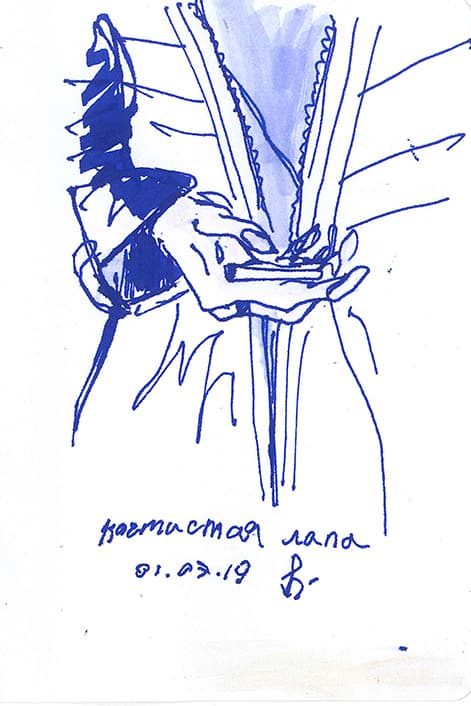 когтистая лапа
01.03.19